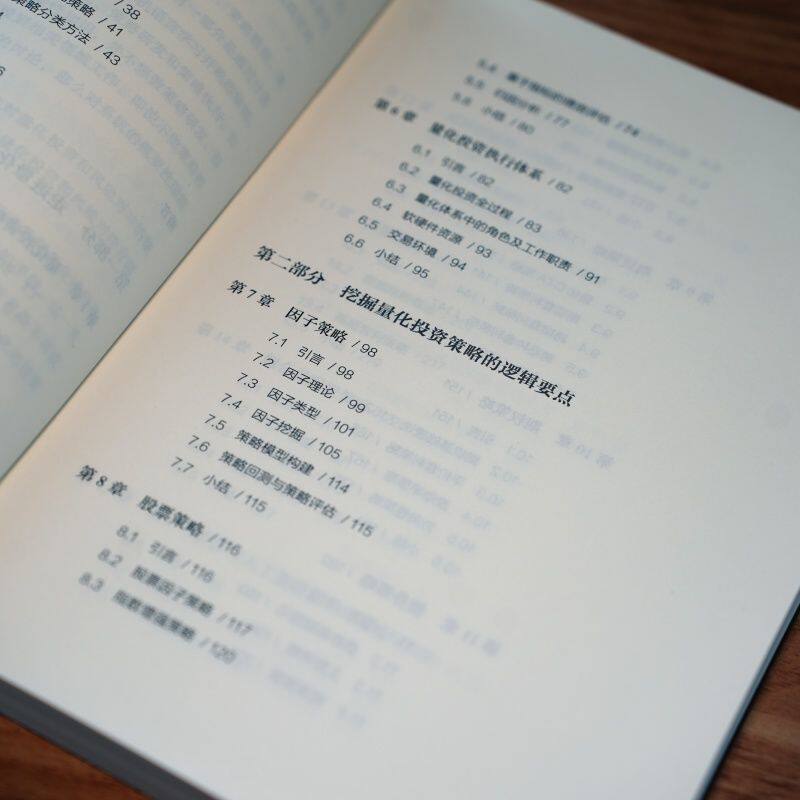 / 38
策略 / 41
策略分类方法 / 43
5.4 基于指标的绩效评估 / 74
5.5 归因分析 / 77
5.6 小结 / 80
第 6 章 量化投资执行体系 / 82
6.1 引言 / 82
6.2 量化投资全过程 / 83
6.3 量化体系中的角色及工作职责 / 91
6.4 软硬件资源 / 93
6.5 交易环境 / 94
6.6 小结 / 95
第二部分 挖掘量化投资策略的逻辑要点
第 7 章 因子策略 / 98
7.1 引言 / 98
7.2 因子理论 / 99
7.3 因子类型 / 101
7.4 因子挖掘 / 105
7.5 策略模型构建 / 114
7.6 策略回测与策略评估 / 115
7.7 小结 / 115
第 8 章 股票策略 / 116
8.1 引言 / 116
8.2 股票因子策略 / 117
8.3 指数增强策略 / 120